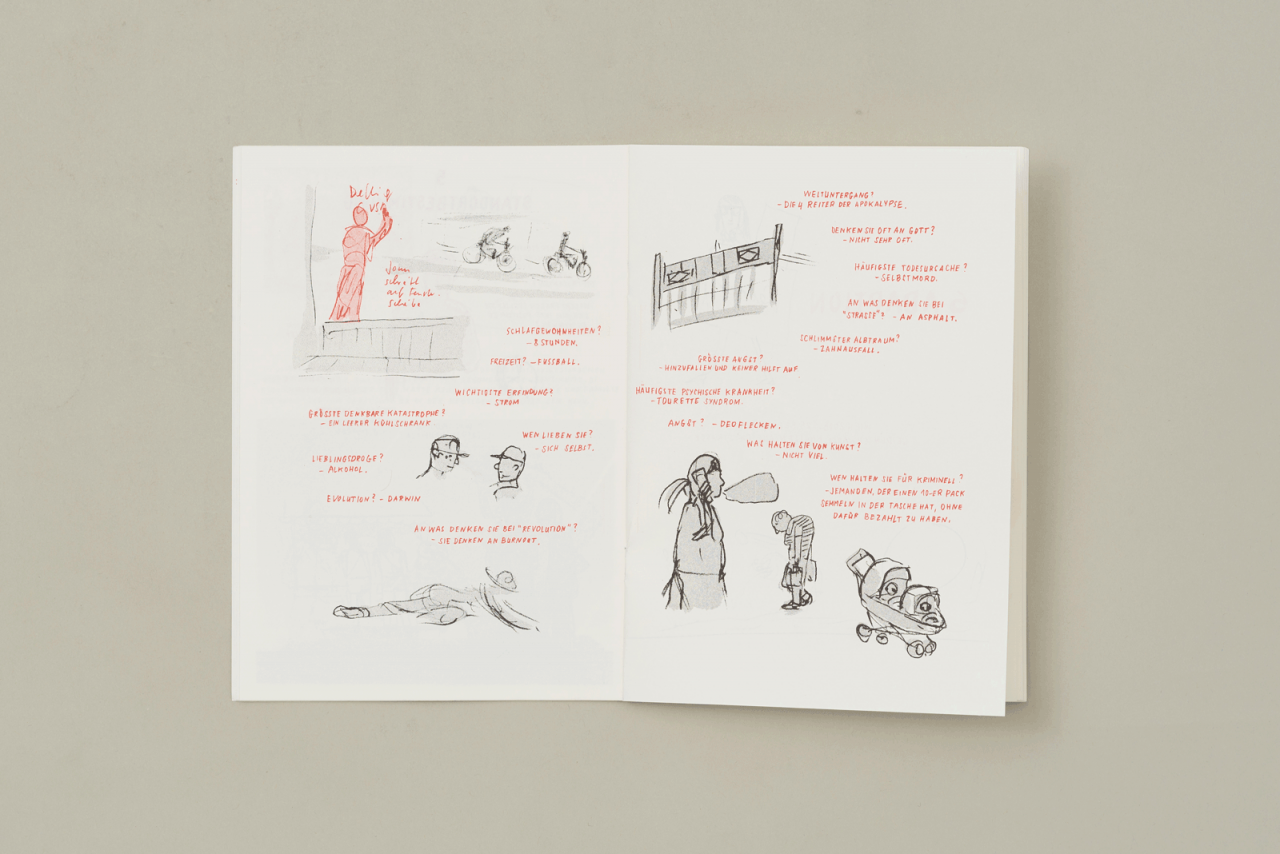 SCHLAFGEWOHNHEITEN?
- 8 STUNDEN.
FREIZEIT? - FUSSBALL.
WICHTIGSTE ERFINDUNG?
- STROM
GRÖSSTE DENKBARE KATASTROPHE?
- EIN LEERER KÜHLSCHRANK
WEN LIEBEN SIE?
- SICH SELBST.
LIEBLINGSDROGE?
- ALKOHOL.
EVOLUTION? - DARWIN
AN WAS DENKEN SIE BEI "REVOLUTION"?
- SIE DENKEN AN BURNOUT.
WELTUNTERGANG?
- DIE 4 REITER DER APOKALYPSE.
DENKEN SIE OFT AN GOTT?
- NICHT SEHR OFT.
HÄUFIGSTE TODESURSACHE?
- SELBSTMORD.
AN WAS DENKEN SIE BEI
"STRASSE"? - AN ASPHALT.
SCHLIMMSTER ALBTRAUM?
- ZAHNAUSFALL.
GRÖSSTE ANGST?
- HINZUFALLEN UND KEINER HILFT AUF
HÄUFIGSTE PSYCHISCHE KRANKHEIT?
- TOURETTE SYNDROM.
ANGST? - DEOFLECKEN.
WAS HALTEN SIE VON KUNST?
- NICHT VIEL.
WEN HALTEN SIE FÜR KRIMINELL?
- JEMANDEN, DER EINEN 10-ER PACK
SEMMELN IN DER TASCHE HAT, OHNE
DAFÜR BEZAHLT ZU HABEN.